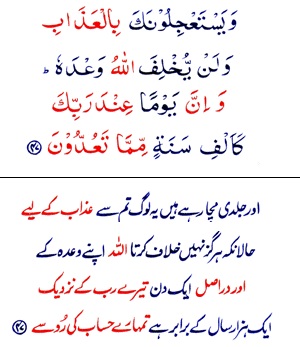 وَيَسْتَعْجِلُوْنَكَ بِالْعَذَابِ
وَلَنْ يُّخْلِفَ اللّٰهُ وَعْدَهٗ ؕ
وَ اِنَّ يَوْمًا عِنْدَ رَبِّكَ
كَاَلْفِ سَنَةٍ مِّمَّا تَعُدُّوْنَ ﴿۴۷﴾
اور جلدی مچا رہے ہیں یہ لوگ تم سے عذاب کے لیے
حالانکہ ہرگز نہیں خلاف کرتا اللہ اپنے وعدہ کے
اور دراصل ایک دن تیرے رب کے نزدیک
ایک ہزار سال کے برابر ہے تمہارے حساب کی رُو سے ﴿۴۷﴾